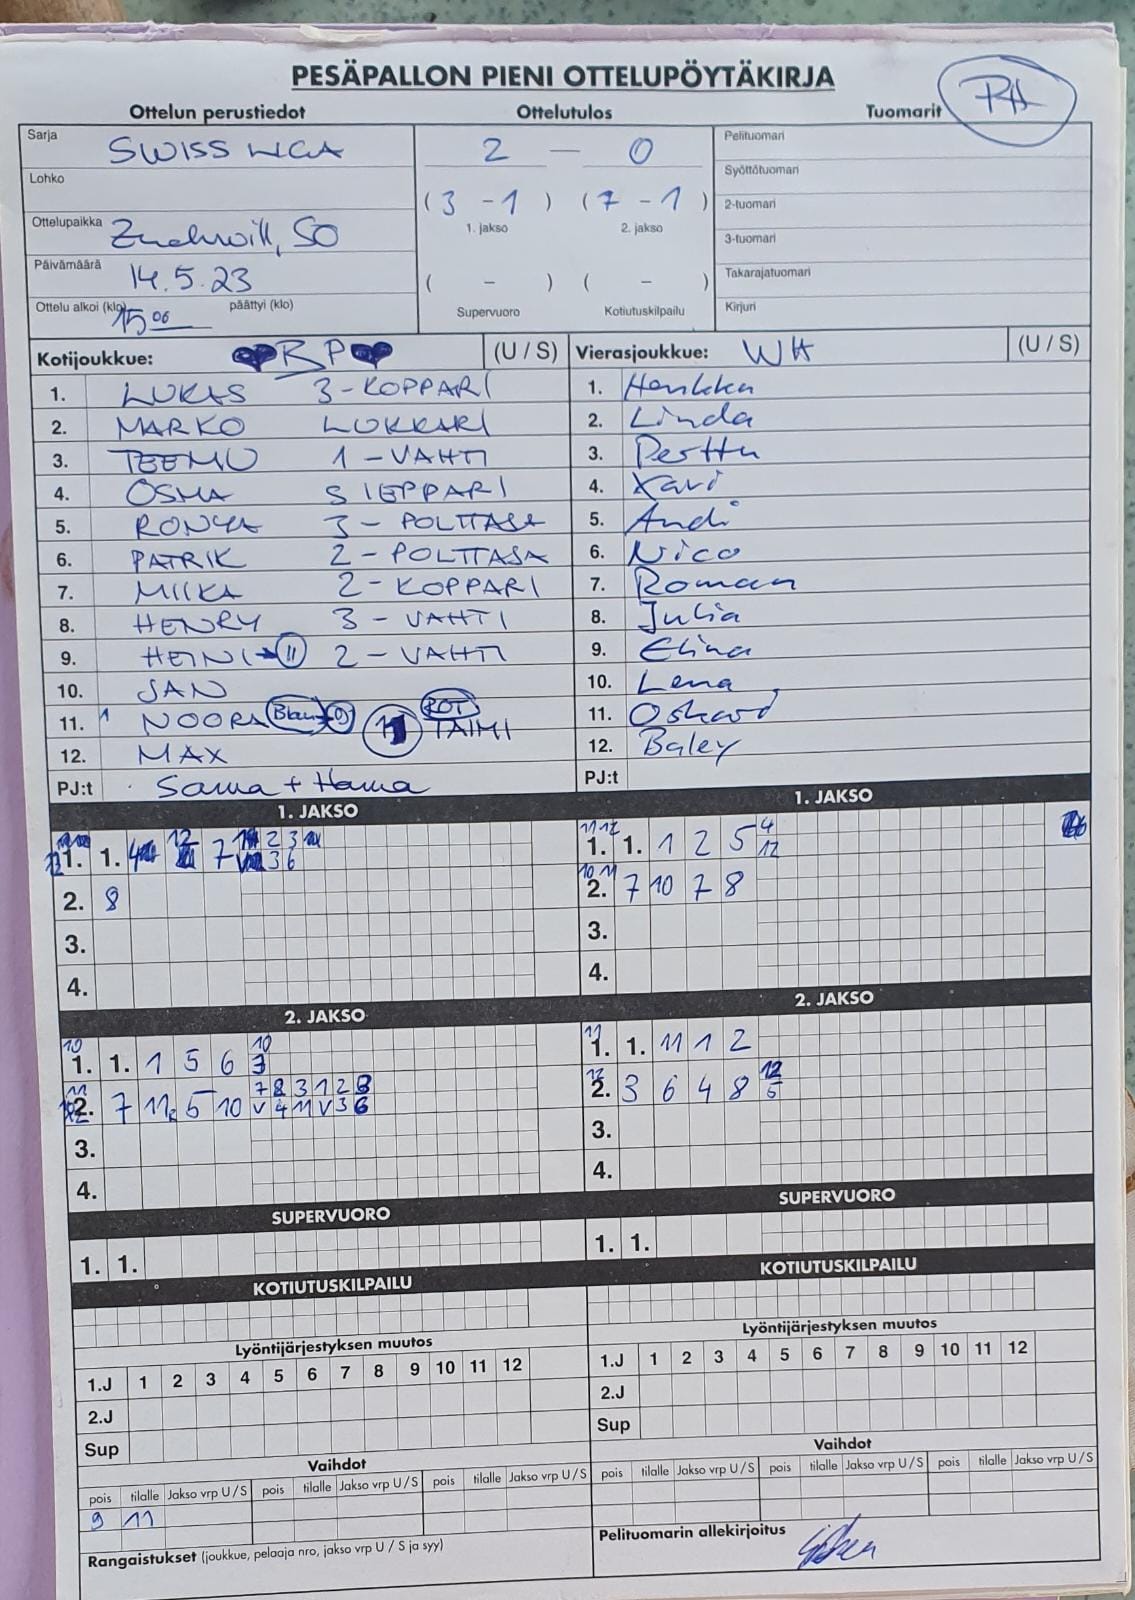 PESÄPALLON PIENI OTTELUPÖYTÄKIRJA
Ottelun perustiedot Ottelutulos Tuomarit
Sarja SWISS LIGA 2 — 0 Pelituomari
Lohko Syöttötuomari
(3 - 1) (7 - 1) 2-tuomari
Ottelupaikka Zuchwill, SO 1. jakso 2. jakso 3-tuomari
Päivämäärä 14.5.23 ( - ) ( - ) Takarajatuomari
Ottelu alkoi (klo) 15 06 päättyi (klo) Supervuoro Kotiutuskilpailu Kirjuri
Kotijoukkue: RP (U / S) Vierasjoukkue: WH (U / S)
1. LUKAS 3-KOPPARI 1. Henkka
2. MARKO LUKKARI 2. Linda
3. TEEMU 1-VAHTI 3. Perttu
4. OSMA SIEPPARI 4. Kari
5. RONYA 3-POLTTASA 5. Andi
6. PATRIK 2-POLTTASA 6. Nico
7. MIIKA 2-KOPPARI 7. Roman
8. HENRY 3-VAHTI 8. Julia
9. HEINI 11 2-VAHTI 9. Elina
10. JAN 10. Lena
11. 1 NOORA Blau 9 ROT TAIMI 11. Oskari
12. MAX 12. Baley
PJ:t Sama + Hama PJ:t
1. JAKSO 1. JAKSO
1. 1. 7 2 3 3 6 11 12 1. 1. 1 2 5 4 12
2. 8 10 11 2. 7 10 7 8
3. 3.
4. 4.
2. JAKSO 2. JAKSO
10 1. 1. 1 5 6 10 3 11 1. 1. 11 1 2
11 2. 7 11 5 10 7 8 3 1 2 8 V 4 11 V 3 6 12 2. 3 6 4 8 12 5
3. 3.
4. 4.
SUPERVUORO SUPERVUORO
1. 1. 1. 1.
KOTIUTUSKILPAILU KOTIUTUSKILPAILU
Lyöntijärjestyksen muutos Lyöntijärjestyksen muutos
1.J 1 2 3 4 5 6 7 8 9 10 11 12 1.J 1 2 3 4 5 6 7 8 9 10 11 12
2.J 2.J
Sup Sup
Vaihdot Vaihdot
pois tilalle Jakso vrp U / S pois tilalle Jakso vrp U / S pois tilalle Jakso vrp U / S pois tilalle Jakso vrp U / S pois tilalle Jakso vrp U / S pois tilalle Jakso vrp U / S
9 11
Rangaistukset (joukkue, pelaaja nro, jakso vrp U / S ja syy) Pelituomarin allekirjoitus